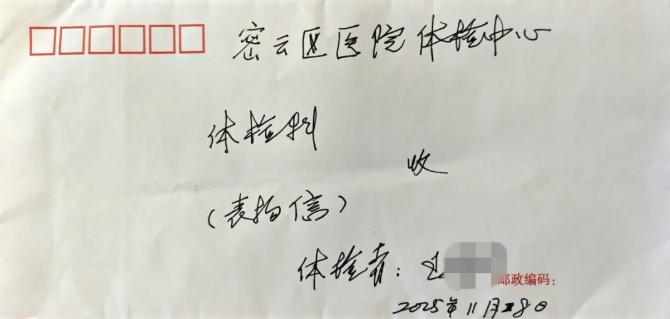 密云区医院体检中心
体检科
收
（表扬信）
体检者：
邮政编码：
2025年11月28日